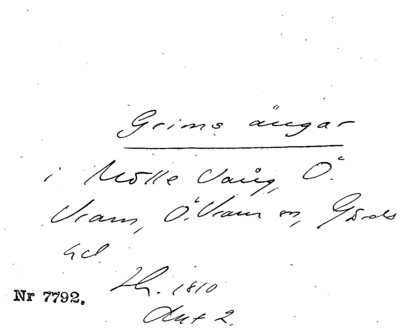 Grims ängar
i Mölle Vång, Ö.
Vram, Ö. Vram sn, Gärds
hd.
Nr 7792. Zh. 1810
akt 2.